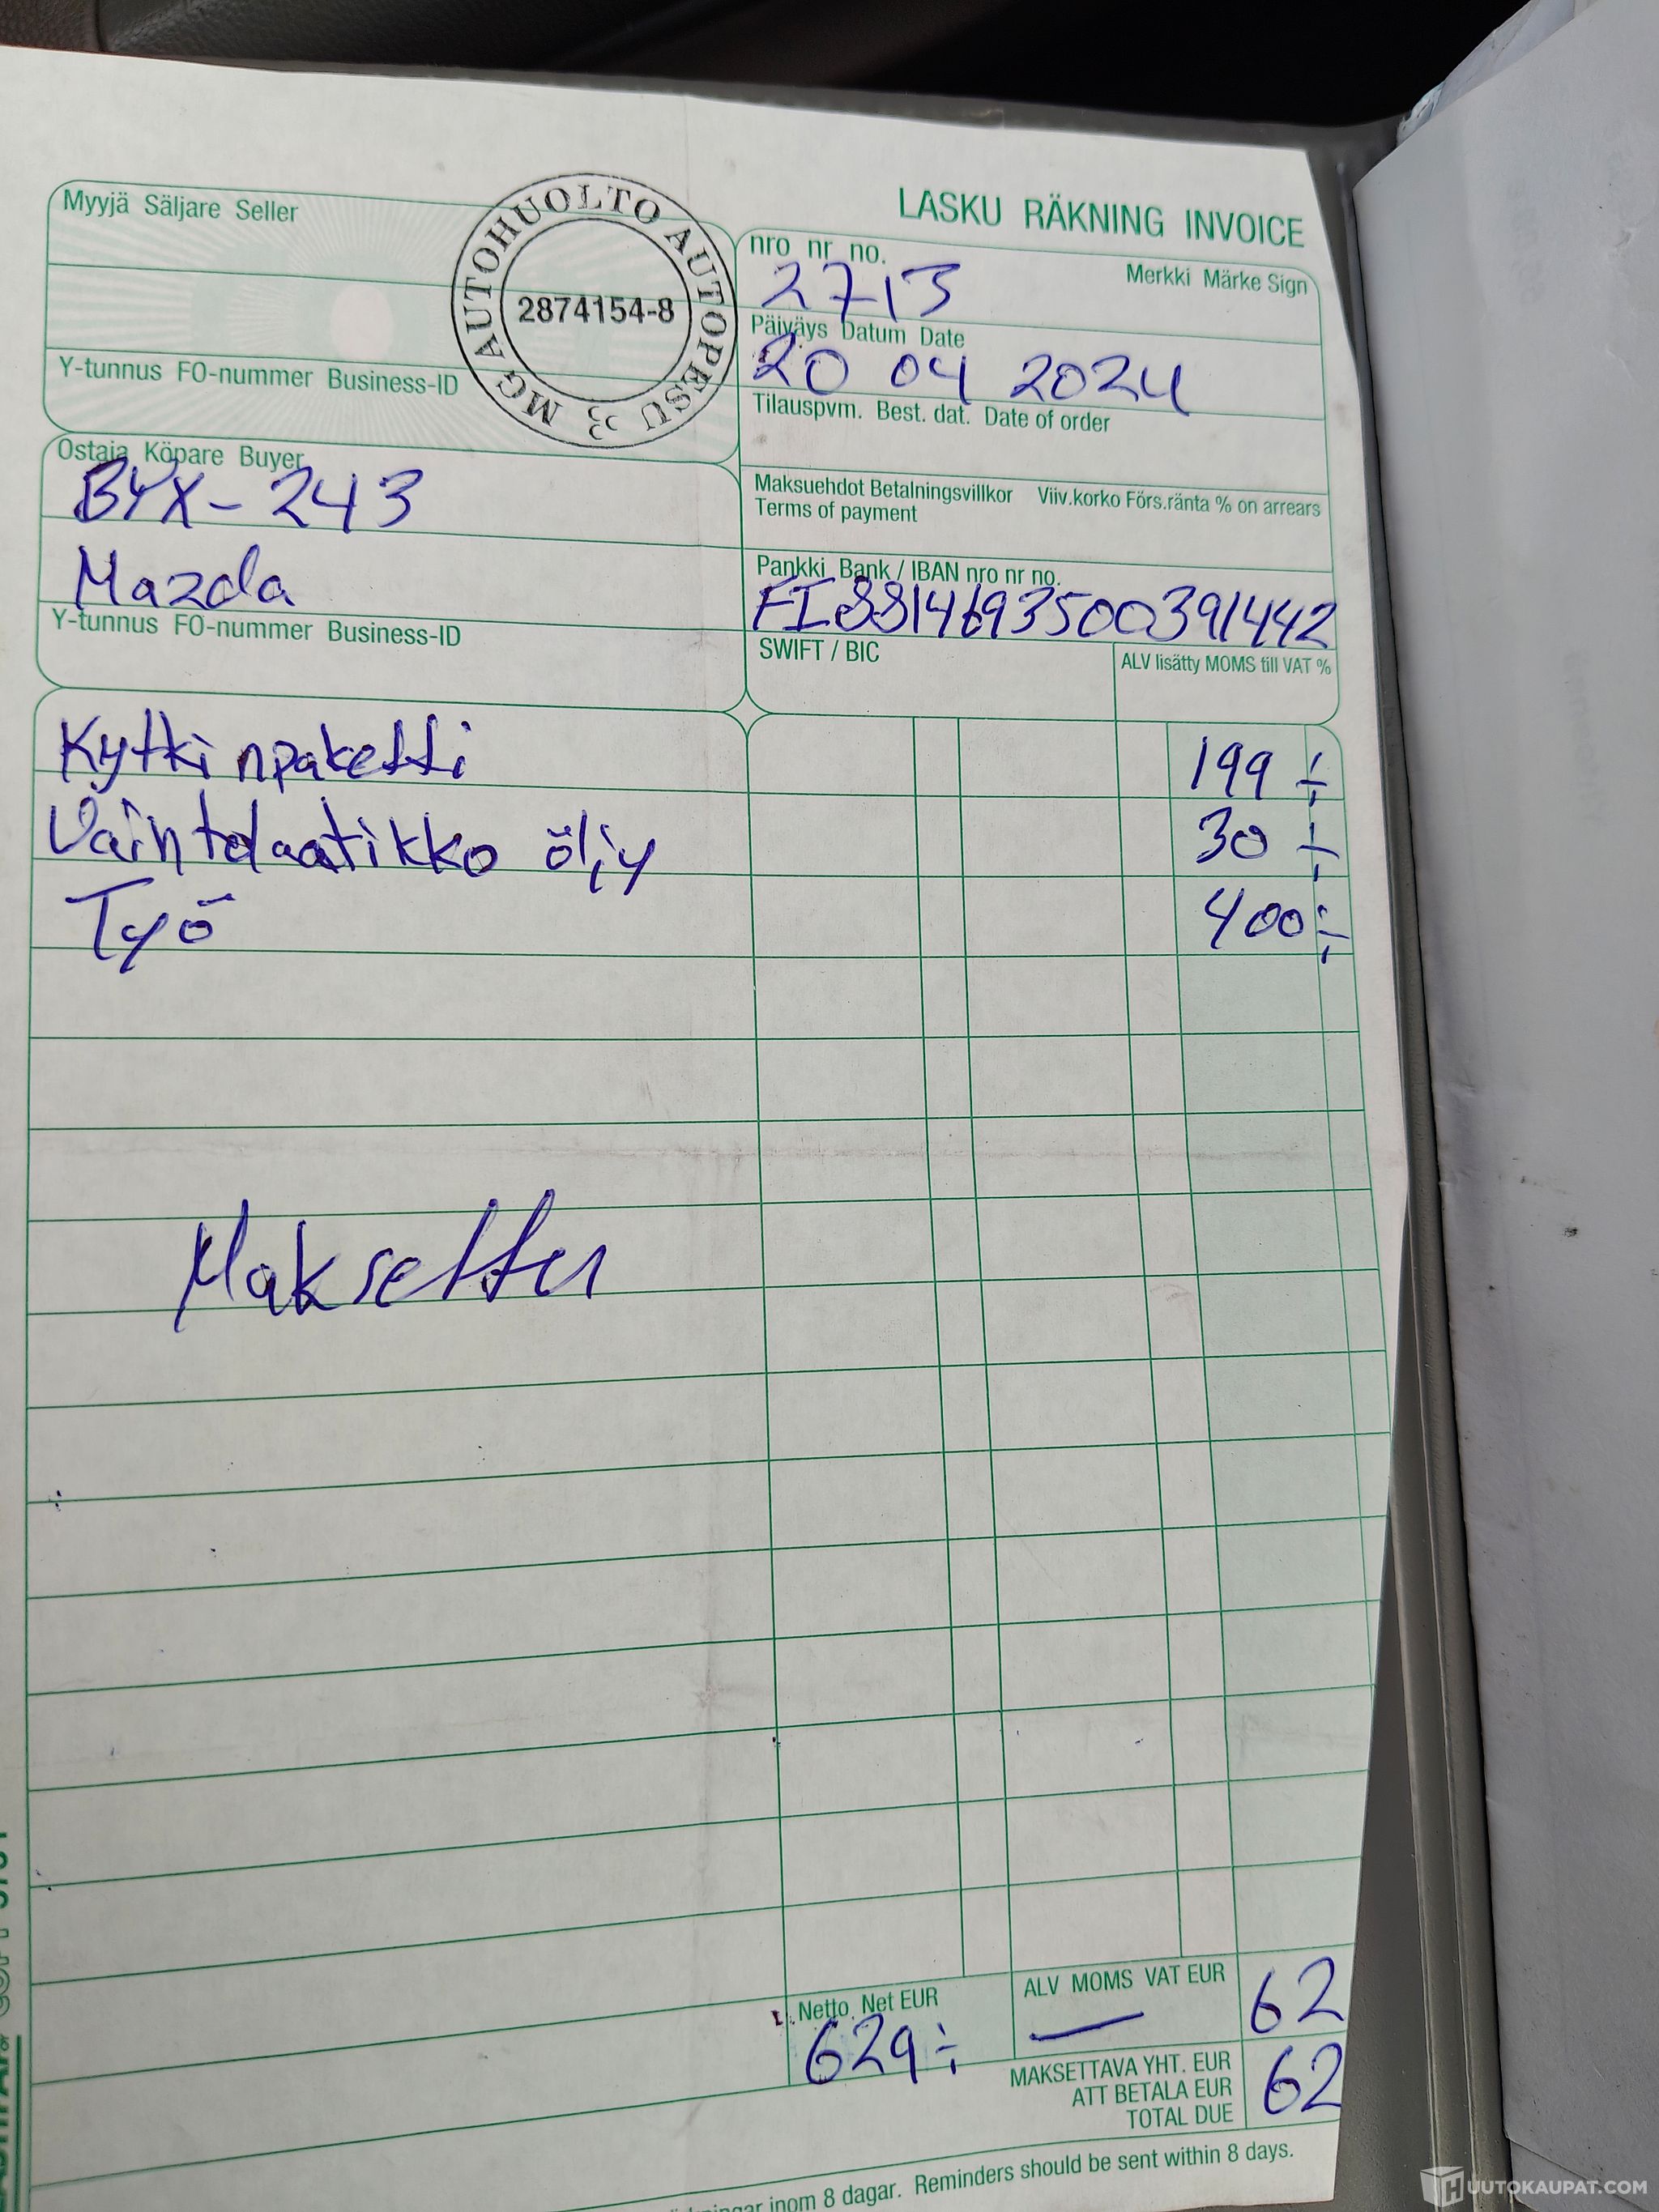 LASKU RÄKNING INVOICE
Myyjä Säljare Seller
MG AUTOHUOLTO AUTOPESU 33
2874154-8
Y-tunnus FO-nummer Business-ID
nro nr no.
Merkki Märke Sign
2713
Päiväys Datum Date
20 04 2024
Tilauspvm. Best. dat. Date of order
Ostaja Köpare Buyer
BYX-243
Mazda
Y-tunnus FO-nummer Business-ID
Maksuehdot Betalningsvillkor Viiv.korko Förs.ränta % on arrears
Terms of payment
Pankki Bank / IBAN nro nr no.
FI8814693500391442
SWIFT / BIC
ALV lisätty MOMS till VAT %
Kytkinpaketti 199 :-
Vaihtolaatikko öljy 30 :-
Työ 400 :-
Maksettu
Netto Net EUR
629 :-
ALV MOMS VAT EUR
—
62
MAKSETTAVA YHT. EUR
ATT BETALA EUR
TOTAL DUE
62
inom 8 dagar. Reminders should be sent within 8 days.
HUUTOKAUPAT.COM